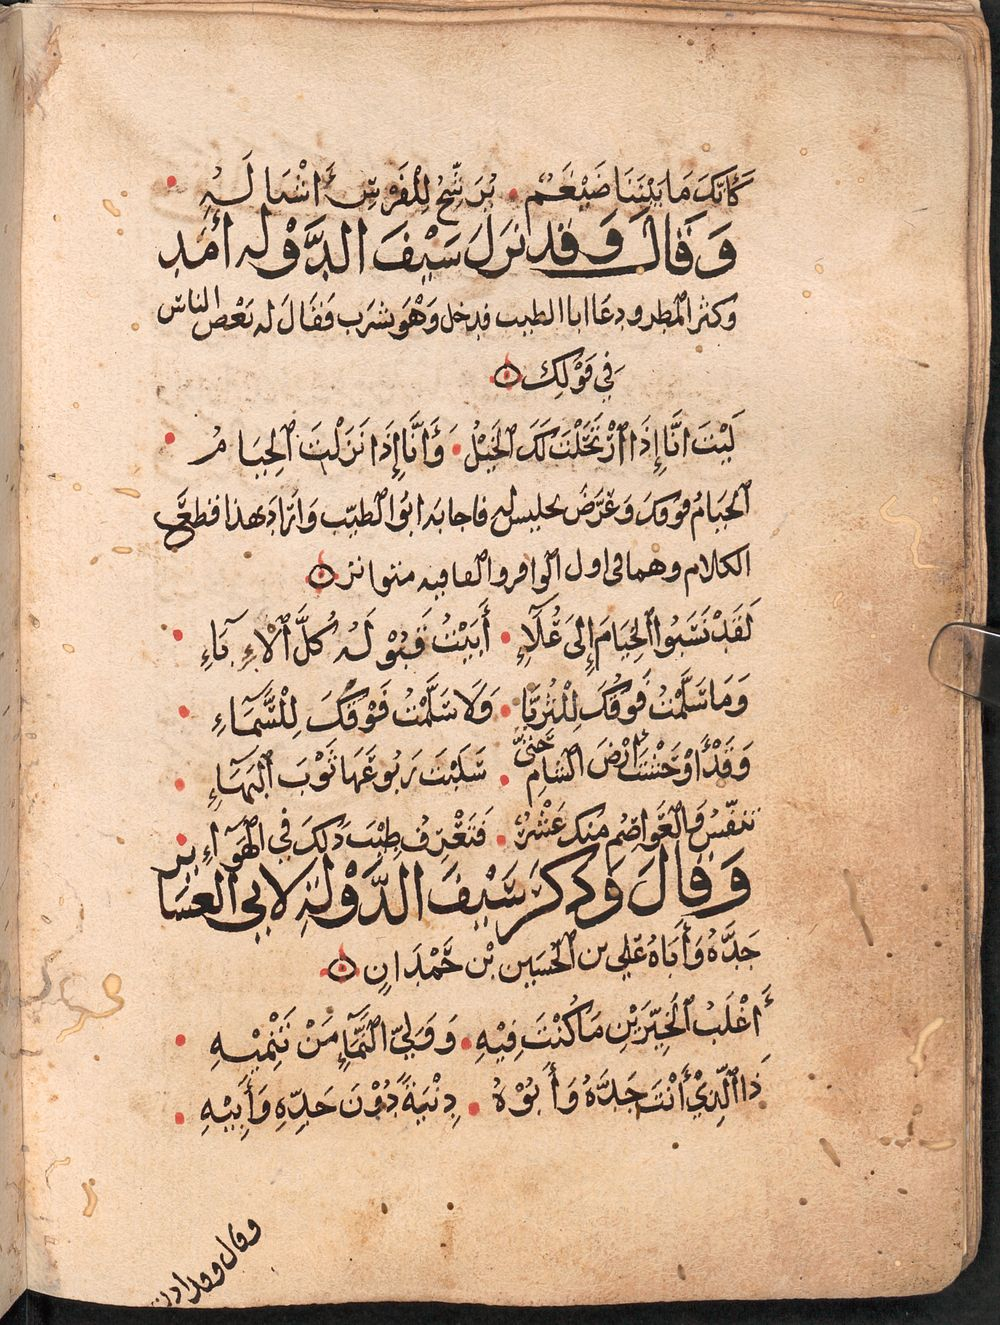 كَأَنَّكَ مَا بَيْنَنَا ضَيْغَمٌ • يُرَشِّحُ لِلْفَرْسِ أَشْبَالَهُ •
وَقَالَ وَقَد نزل سَيْفَ الدَّوْله آمد
وكثر المطر ودعَا ابا الطيب فدخل وَهْوَ يشرَب فَقَالَ له بَعْض الناس
في قَوْلِك
لَيْتَ انَّا إِذَا ارْتَحَلْتَ لَكَ الخَيْلُ • وَأَنَّا إِذَا نَزَلْتَ الخِيَامُ •
الخيَامُ فوقك وَعَرَّضَ بجليس له فاجابه ابُو الطيّب وَارَاد بهذا قطع
الكلام وهما في اول الوافر والقافيه متواتر
لَقَدْ نَسَبُوا الخِيَامَ إِلَى عُلَاءٍ • أَبَيْتُ قَبُوْلَهُ كُلَّ الْإِبَاءِ •
وَمَا سَلَّمْتُ فَوْقَكَ لِلثُّرَيَّا • وَلَا سَلَّمْتُ فَوْقَكَ لِلْسَّمَاءِ •
وَقَدْ أَوْحَشْتَ أَرْضَ الشَامِ حَتَّى • سَلَبْتَ رُبُوْعَهَا ثَوْبَ الْبَهَاءِ •
تنفّسُ وَالعَوَاصِمُ مِنك عَشْرٌ • فَتَعْرِفُ طِيْبَ ذَلِكَ فِي الهَوَاءِ •
وَقَالَ وَذكرَ سَيْفَ الدَّوْلَةِ لابي العَسَاير
جَدَّهُ وَأَبَاهُ عَلِي بن الحُسَين بْن حَمْدَانٍ
أَغْلَبُ الحَيِّزَيْنِ مَا كُنْتَ فِيْهِ • وَوَلِيُّ النَّمَاءِ مَنْ تَنْمِيْهِ •
ذَا الَّذِيْ أَنْتَ جَدَّهُ وَأَبُوْهُ • دِنْيَةً دُوْنَ جَدِّهِ وَأَبِيْهِ •
وقال وقد اذن